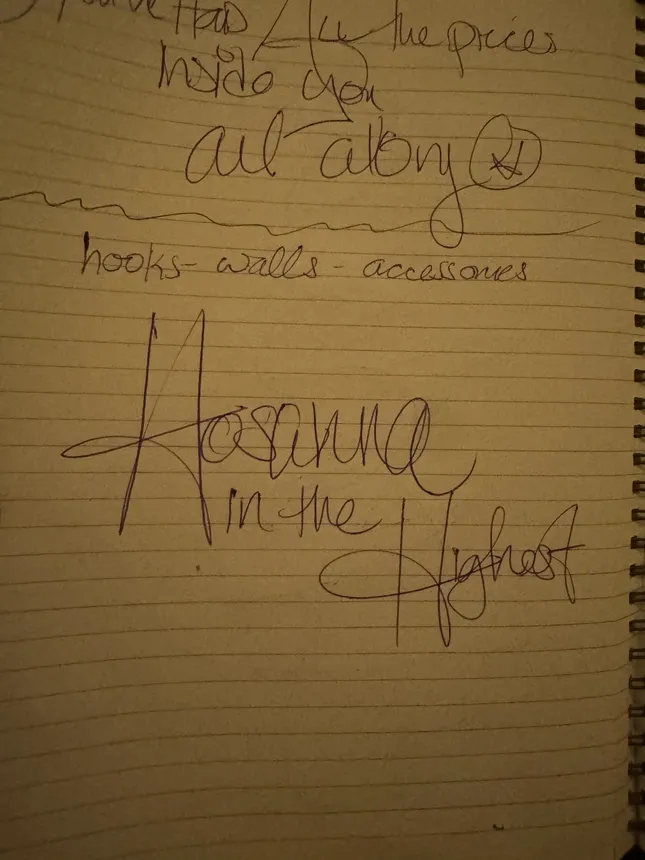 You've Had All the prices
Inside you
all along
hooks - walls - accessories
Hosanna
in the
Highest